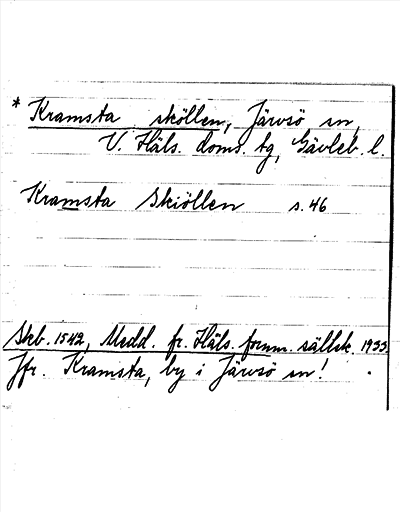 * Kramsta sköllen, Järvsö sn,
V. Häls. doms. tg, Gävleb. l.
Kramsta Skiöllen s. 46
Skb. 1542, Medd. fr. Häls. fornm. sällsk. 1933.
Jfr. Kramsta, by i Järvsö sn!